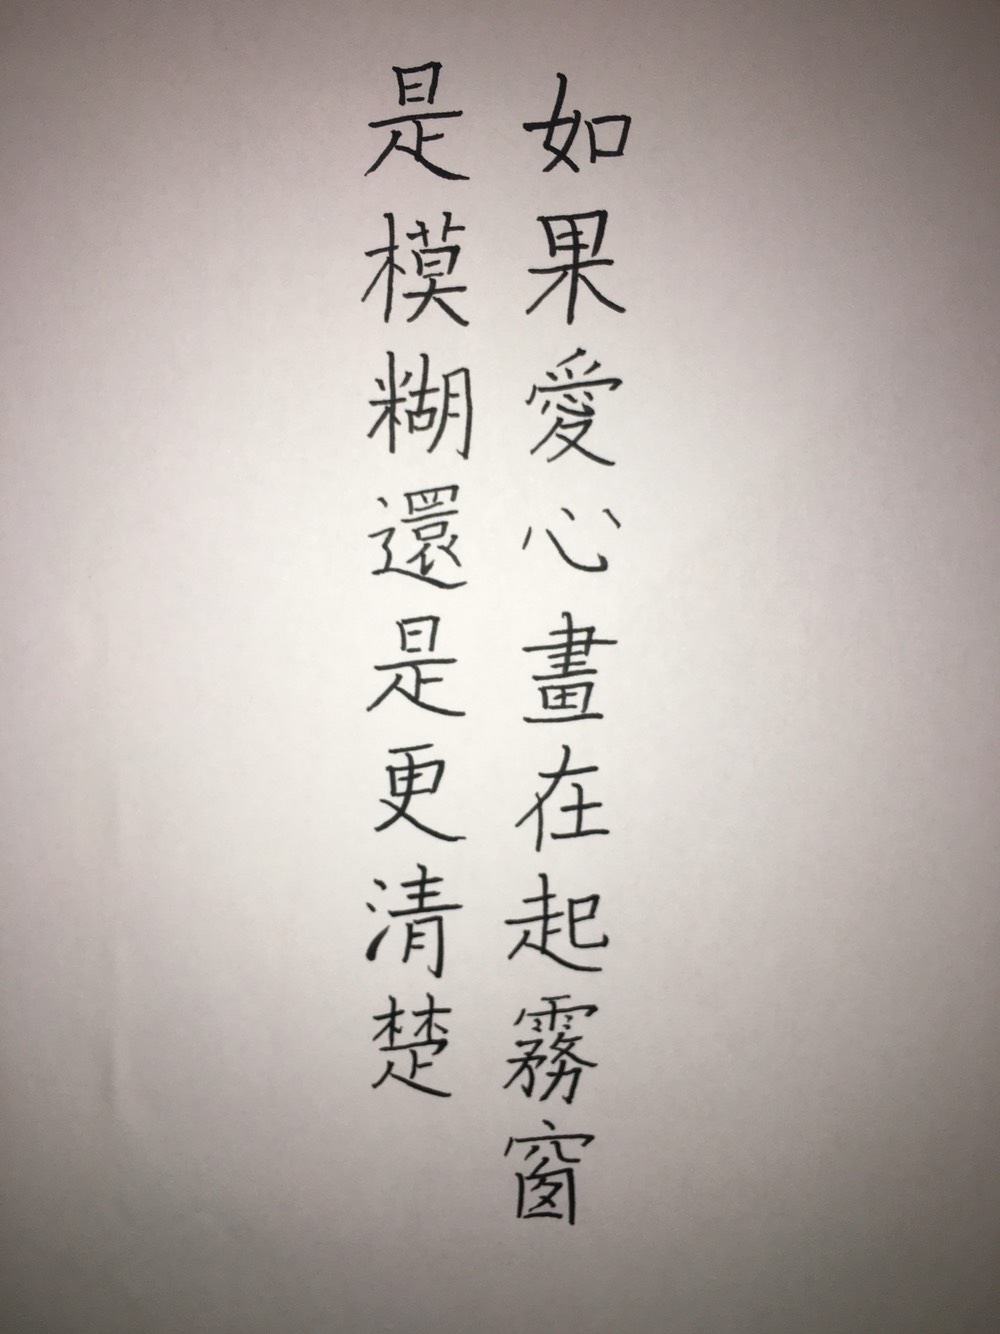 如果愛心畫在起霧窗
是模糊還是更清楚